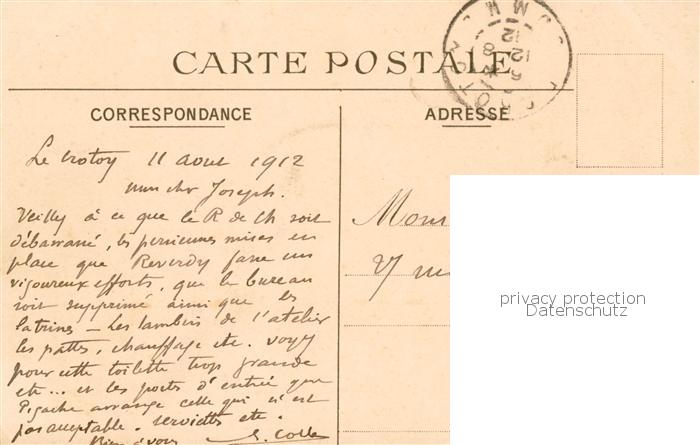 CARTE POSTALE
CORRESPONDANCE
ADRESSE
Le Crotoy 11 aout 1912
mon cher Joseph.
Veillez à ce que le R de Ch soit
débarrassé, les persiennes mises en
place que Reverdy fasse un
vigoureux efforts, que le bureau
soit supprimé ainsi que les
latrines - Les lambris de l'atelier
les pattes, chauffage etc. voyez
pour cette toilette trop grande
etc... et les ports d'entrée que
Pigache arrange celle qui n'est
pas acceptable. serviettes etc.
Bien à vous
Mons
27 rue
privacy protection
Datenschutz